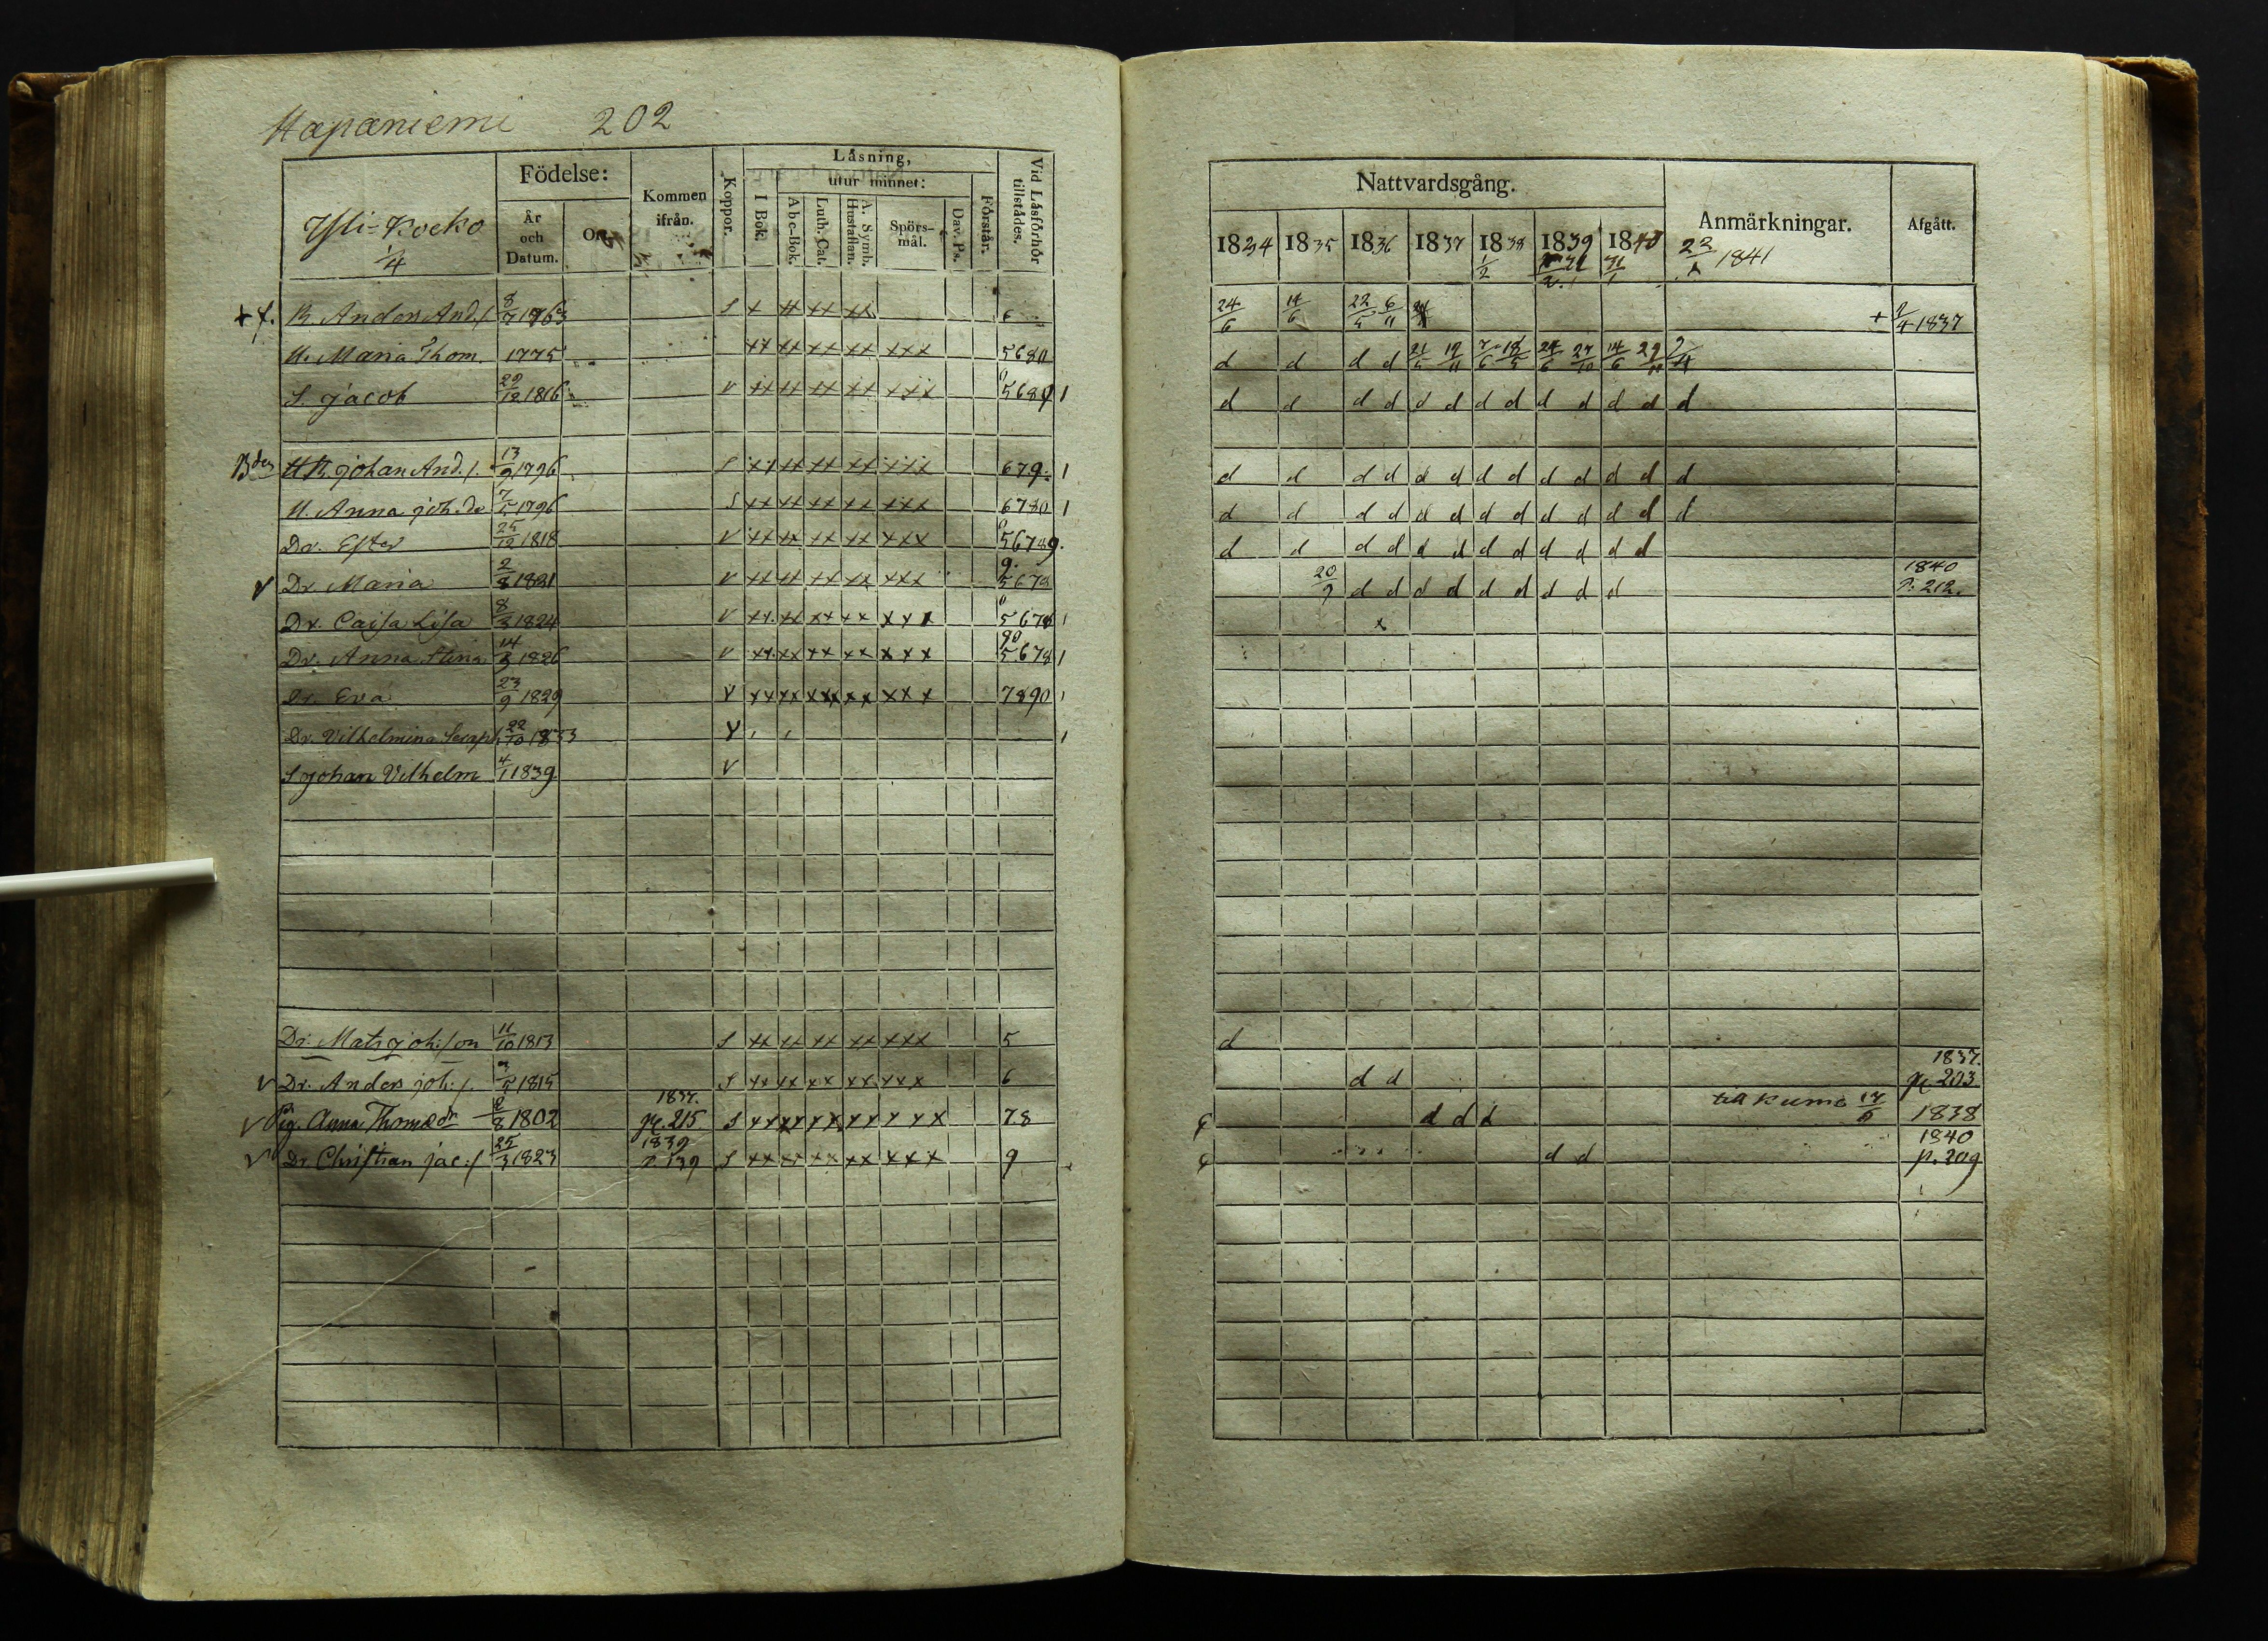 Hapaniemi 202
Födelse: Kommen ifrån. Koppor. Läsning, Vid Läsförhör tillstädes.
utur minnet:
År och Datum. Ort. I Bok. Abc-Bok. Luth. Cat. A. Symb. Hustaflan. Spörsmål. Dav. Ps. Förstår.
Yli-Kocko
1/4
+ B. Anders And.s. 8/7 1763 S x xx xx xx 6
H. Maria Thom. 1775 xx xx xx xx xxx 5680
S. Jacob 29/12 1816 v xx xx xx xx xxx 0 5689 1
Bden H B. Johan And.s. 13/9 1796 S xx xx xx xx xxx 679. 1
H. Anna Joh. do 7/5 1796 S xx xx xx xx xxx 6780 1
Dr. Ester 25/12 1818 v xx xx xx xx xxx 0 56789.
v Dr. Maria 2/8 1821 v xx xx xx xx xxx 9. 5678
Dr. Caisa Lisa 8/3 1824 v xx xx xx xx xxx 0 5678 1
Dr. Anna Stina 14/3 1826 v xx xx xx xx xxx 90 5678 1
Dr. Eva 23/9 1829 v xx xx xx xx xxx 7890 1
Dr. Vilhelmina Seraph. 22/10 1833 v 1
S Johan Vilhelm 4/1 1839 v
Dr. Mats Joh:son 11/10 1813 S xx xx xx xx xxx 5
v Dr. Anders Joh:s. 1815 S xx xx xx xx xxx 6
v Pig. Anna Thomædr 2/8 1802 1837. p. 215 S xx xx xx xx xxx 7.8
v Dr Christian Jac:s 25/3 1823 1839 p. 139 S xx xx xx xx xxx 9
Nattvardsgång. Anmärkningar. Afgått.
1834 1835 1836 1837 1838 1839 1840
1/2 31/1 22/1 1841
24/6 14/6 22/5 6/11 + 2/4 1837
d d d d 21/5 19/11 7/6 18/5 24/6 27/10 14/6 29/11
d d d d d d d d d d d d d
d d d d d d d d d d d d d
d d d d d d d d d d d d d
d d d d d d d d d d d d
20/9 d d d d d d d d d 1840 p. 212.
x
d
d d 1837. p. 203
d d d till Kumo 17/6 1838
d d 1840 p. 209